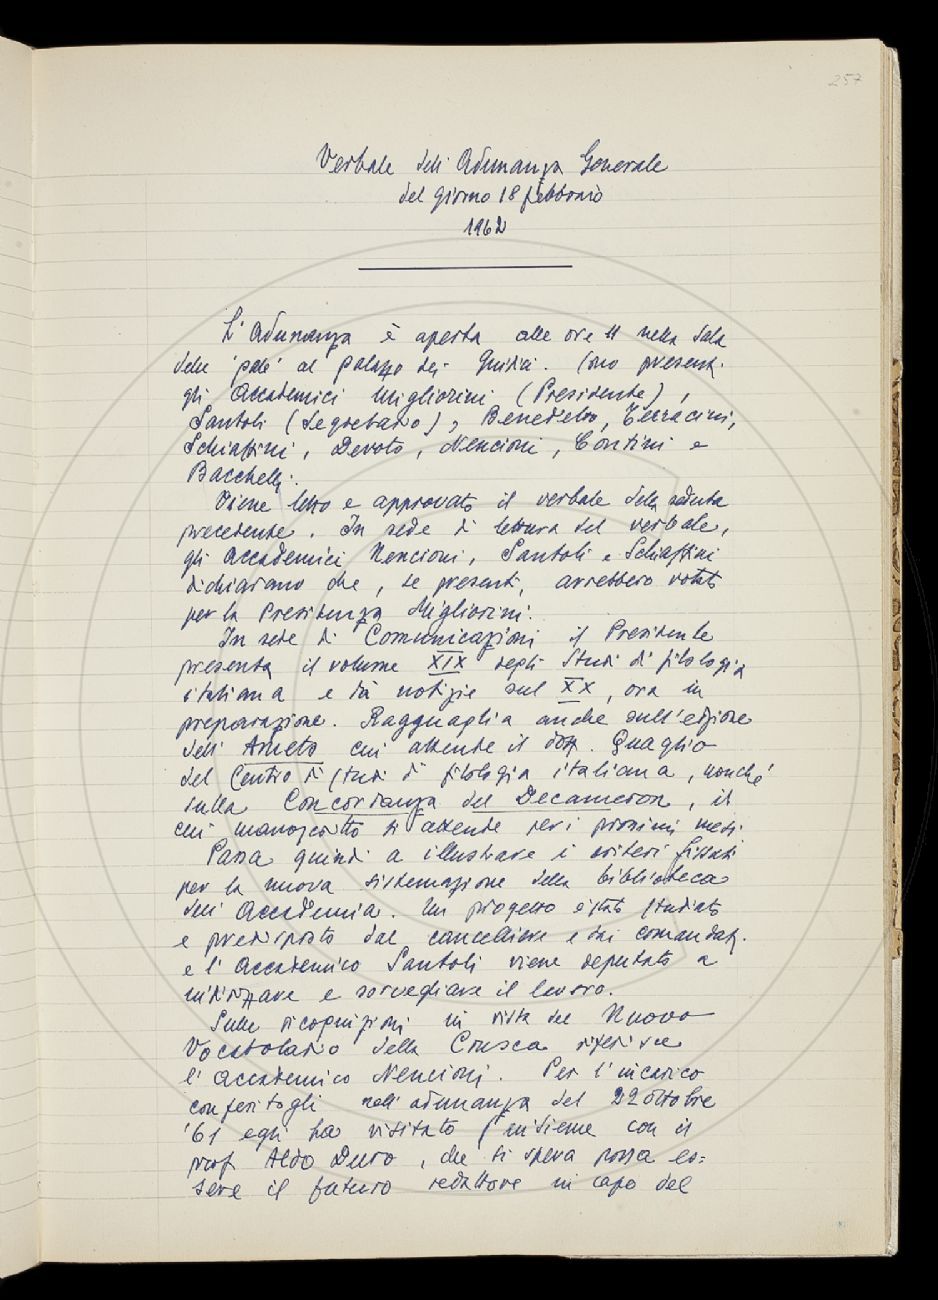 257
Verbale dell'Adunanza Generale
del giorno 18 febbraio
1962
L'Adunanza è aperta alle ore 11 nella Sala
delle 'pale' al palazzo dei Giudici. Sono presenti
gli Accademici Migliorini (Presidente),
Santoli (Segretario), Benedetto, Terracini,
Schiaffini, Devoto, Nencioni, Contini e
Bacchelli.
Viene letto e approvato il verbale della seduta
precedente. In sede di lettura del verbale,
gli Accademici Nencioni, Santoli e Schiaffini
dichiarano che, se presenti, avrebbero votato
per la Presidenza Migliorini.
In sede di Comunicazioni il Presidente
presenta il volume XIX degli Studi di filologia
italiana e dà notizie sul XX, ora in
preparazione. Ragguaglia anche sull'edizione
dell'Ameto cui attende il dott. Quaglio
del Centro di Studi di filologia italiana, nonché
sulla Concordanza del Decameron, il
cui manoscritto si attende per i prossimi mesi.
Passa quindi a illustrare i criteri fissati
per la nuova sistemazione della biblioteca
dell'Accademia. Un progetto è stato studiato
e predisposto dal cancelliere e dai comandati.
e l'Accademico Santoli viene deputato a
indirizzare e sorvegliare il lavoro.
Sulle ricognizioni in vista del Nuovo
Vocabolario della Crusca riferisce
l'Accademico Nencioni. Per l'incarico
conferitogli nell'adunanza del 22 ottobre
'61 egli ha visitato (insieme con il
prof. Aldo Duro, che si spera possa es=
sere il futuro redattore in capo del